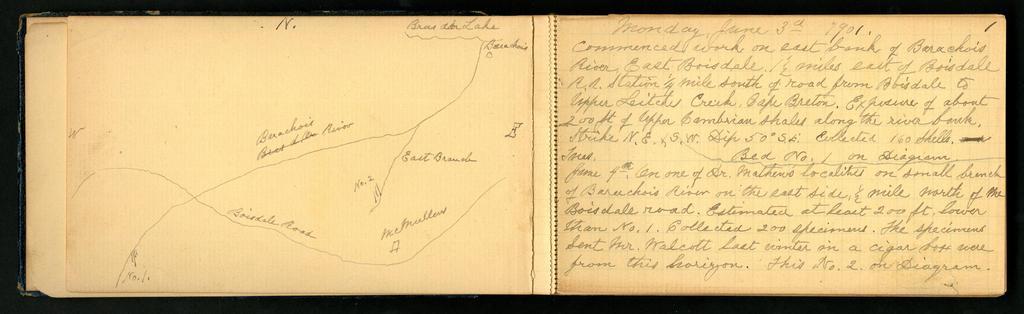 N.
Bras dor Lake
Barachois
W
Barachois
River
E
East Branch
No. 2
Boisdale Road
McMullens
No. 1.
1
Monday June 3d 1901.
Commenced work on east bank of Barachois
River, East Boisdale. 1½ miles east of Boisdale
R.R. Station ½ mile south of road from Boisdale to
Upper Leitches Creek, Cape Breton. Exposure of about
200 ft of Upper Cambrian shales along the river bank.
Strike N.E. & S.W. Dip 50° S.E. Collected 160 Shells.
Bed No. 1 on Diagram.
June 4th. On one of Dr. Mathews localities on small branch
of Barachois River on the east side, ½ mile north of the
Boisdale road. Estimated at least 200 ft. lower
than No. 1. Collected 200 specimens. The specimens
sent Mr. Walcott last winter in a cigar box were
from this horizon. This No. 2. on Diagram.